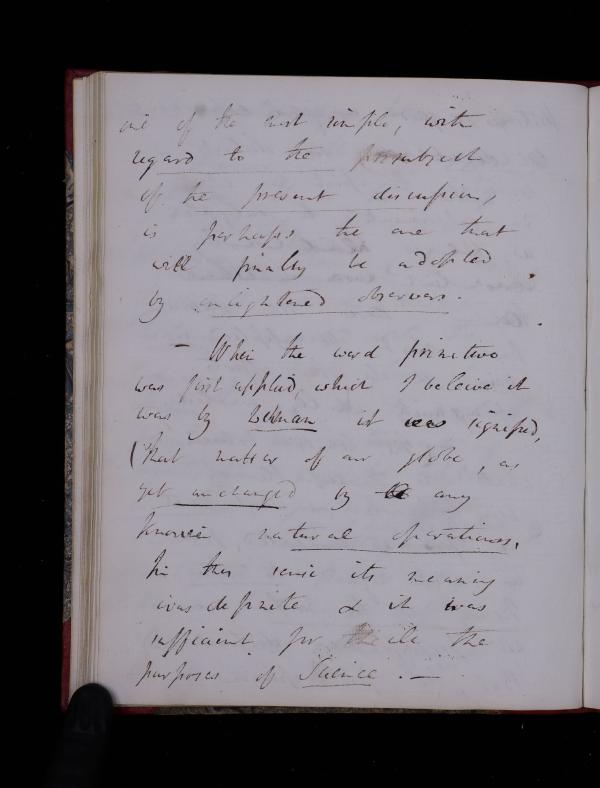 one of the most simple, with
regard to the subject
of the present discussion,
is perhaps the one that
will finally be adopted
by enlightened observers.
– When the word primitive
was first applied, which I beleive it
was by Lehman it signified,
(that matter of our globe, as
yet unchanged by any
known natural operations.
In this sense its meaning
was definite & it was
sufficient for the
purposes of Science. —